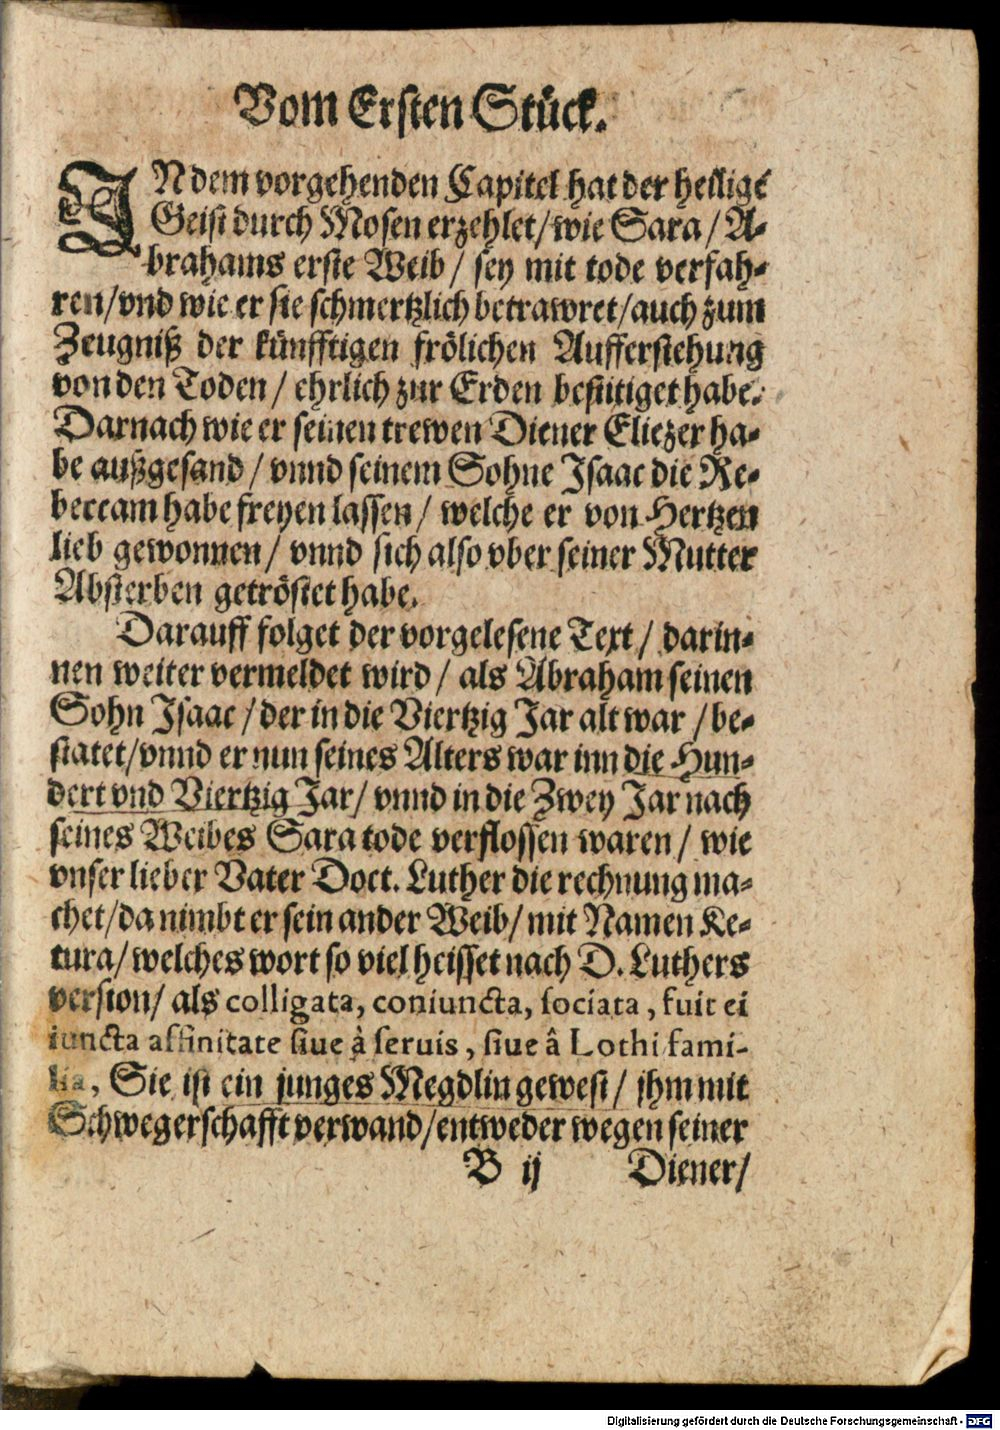 Vom Ersten Stück.
IN dem vorgehenden Capitel hat der heilige
Geist durch Mosen erzehlet/ wie Sara/ A-
brahams erste Weib/ sey mit tode verfah-
ren/ vnd wie er sie schmertzlich betrawret/ auch zum
Zeugniß der künfftigen frölichen Aufferstehung
von den Toden/ ehrlich zur Erden bestitiget habe.
Darnach wie er seinen trewen Diener Eliezer ha-
be außgesand/ vnnd seinem Sohne Isaac die Re-
beccam habe freyen lassen/ welche er von Hertzen
lieb gewonnen/ vnnd sich also vber seiner Mutter
Absterben getröstet habe.
Darauff folget der vorgelesene Text/ darin-
nen weiter vermeldet wird/ als Abraham seinen
Sohn Isaac/ der in die Viertzig Jar alt war/ be-
statet/ vnnd er nun seines Alters war inn die Hun-
dert vnd Viertzig Jar/ vnnd in die Zwey Jar nach
seines Weibes Sara tode verflossen waren/ wie
vnser lieber Vater Doct. Luther die rechnung ma-
chet/ da nimbt er sein ander Weib/ mit Namen Ke-
tura/ welches wort so viel heisset nach D. Luthers
version/ als colligata, coniuncta, sociata, fuit ei
iuncta affinitate siue à seruis, siue â Lothi fami-
lia, Sie ist ein junges Megdlin gewest/ jhm mit
Schwegerschafft verwand/ entweder wegen seiner
B ij Diener/
Digitalisierung gefördert durch die Deutsche Forschungsgemeinschaft - DFG